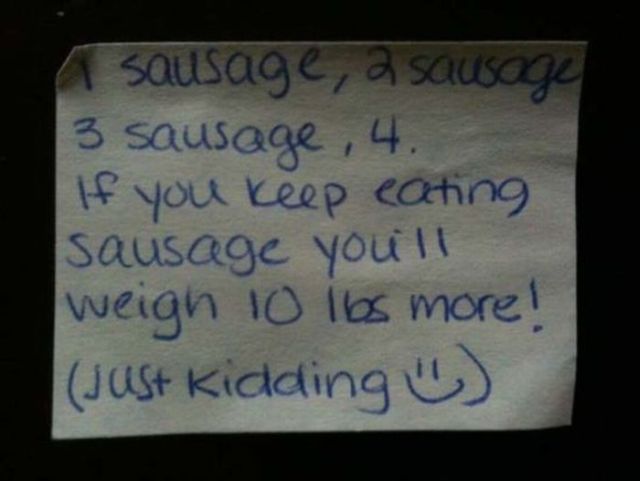 1 sausage, 2 sausage
3 sausage, 4.
If you keep eating
sausage you'll
weigh 10 lbs more!
(Just kidding ")